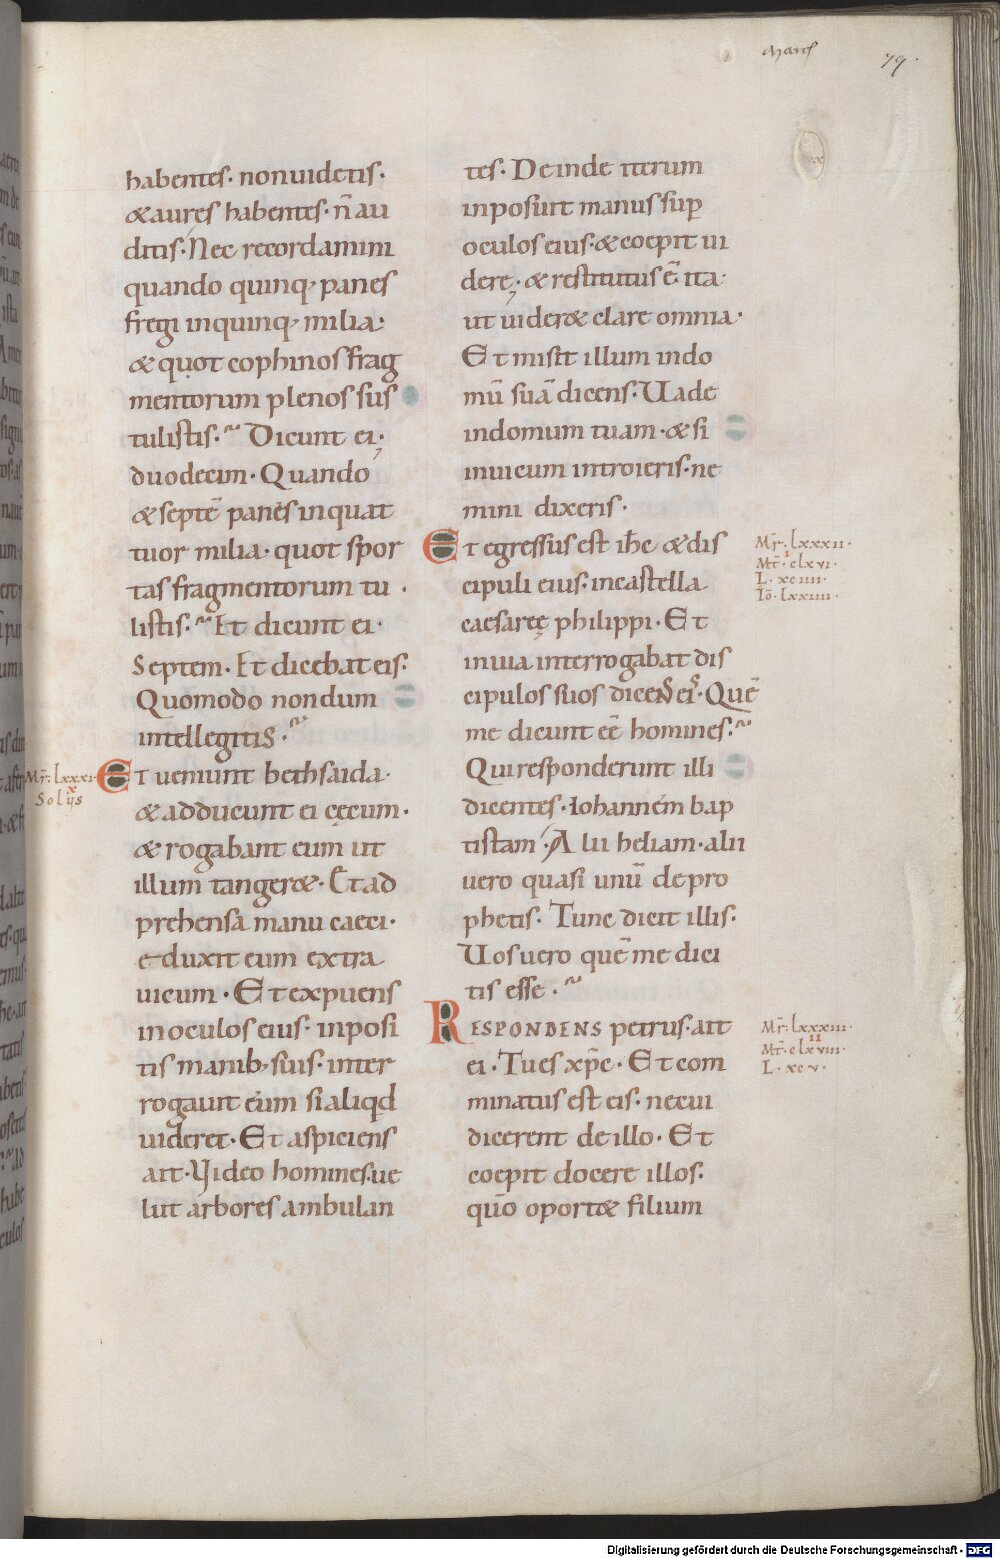 Marc
79
habentes· non uidetis·
& aures habentes· n̄ au
ditis· Nec recordamini
quando quinq; panes
fregi in quinq; milia·
& quot cophinos frag
mentorum plenos sus
tulistis· Dicunt ei·
duodecim· Quando
& septē panes in quat
tuor milia· quot spor
tas fragmentorum tu
listis· Et dicunt ei·
Septem· Et dicebat eis·
Quomodo nondum
intellegitis·
Mr̄· lxxxi·
Sol· x
Et ueniunt bethsaida·
& adducunt ei cęcum·
& rogabant eum ut
illum tanger&· Et ad
prehensa manu caeci·
eduxit eum extra
uicum· Et expuens
in oculos eius· inposi
tis manib; suis· inter
rogauit eum si aliqd
uideret· Et aspiciens
ait· Video homines ue
lut arbores ambulan
tes· Deinde iterum
inposuit manus sup̄
oculos eius· & coepit ui
dere· & restitutus ē ita·
ut uider& clare omnia·
Et misit illum in do
mū suā dicens· Uade
in domum tuam· & si
in uicum introieris· ne
mini dixeris·
Et egressus est ih̄c & dis
cipuli eius· in castella
caesaręę philippi· Et
in uia interrogabat dis
cipulos suos dicens eis· Quē
me dicunt eē homines·
Qui responderunt illi
dicentes· Iohannem bap
tistam· Alii heliam· alii
uero quasi unū de pro
phetis· Tunc dicit illis·
Uos uero quē me dici
tis esse·
Mr̄· lxxxii·
Mt̄· clxvi·
L· xciiii·
Iō· lxxiiii·
Respondens petrus· ait
ei· Tu es xp̄c· Et com
minatus est eis· ne cui
dicerent de illo· Et
coepit docere illos·
quō oport& filium
Mr̄· lxxxiii·
II
Mt̄· clxviii·
L· xcv·
Digitalisierung gefördert durch die Deutsche Forschungsgemeinschaft - DFG